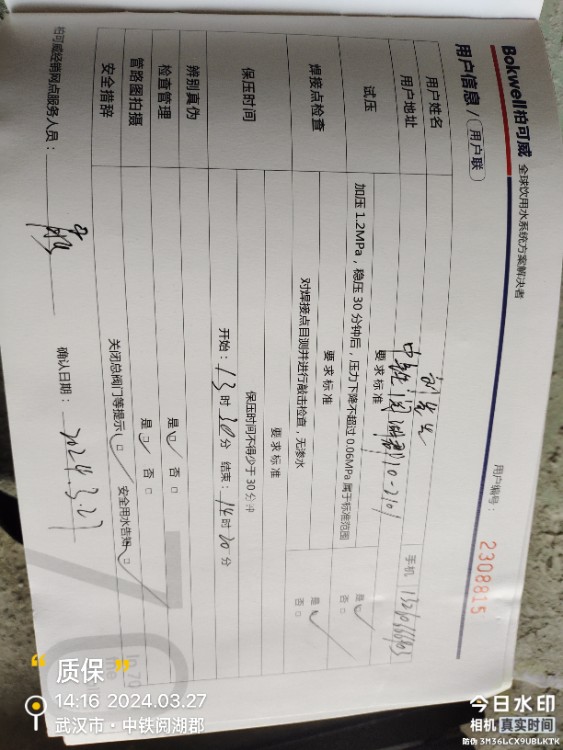 Bokwell柏可威 全球饮用水系统方案解决者
用户信息/用户联
用户编号： 2308815
用户姓名
用户地址 中铁阅湖郡10-2101 手机
试压 要求标准
加压 1.2MPa，稳压 30 分钟后，压力下降不超过 0.06MPa 属于标准范围 是□ 否□
焊接点检查 要求标准
对焊接点目测并进行敲击检查，无渗水 是□ 否□
保压时间 要求标准
保压时间不得少于 30 分钟
开始：13时30分 结束：14时00分
辨别真伪
检查管理 是□ 否□
管路图拍摄 是□ 否□
安全措辞 关闭总阀门等提示□ 安全用水告知□
柏可威经销网点服务人员： 确认日期：2024.3.27
“质保”
14:16 2024.03.27
武汉市·中铁阅湖郡
今日水印
相机真实时间
防伪 3M36LCX9UBLKTK